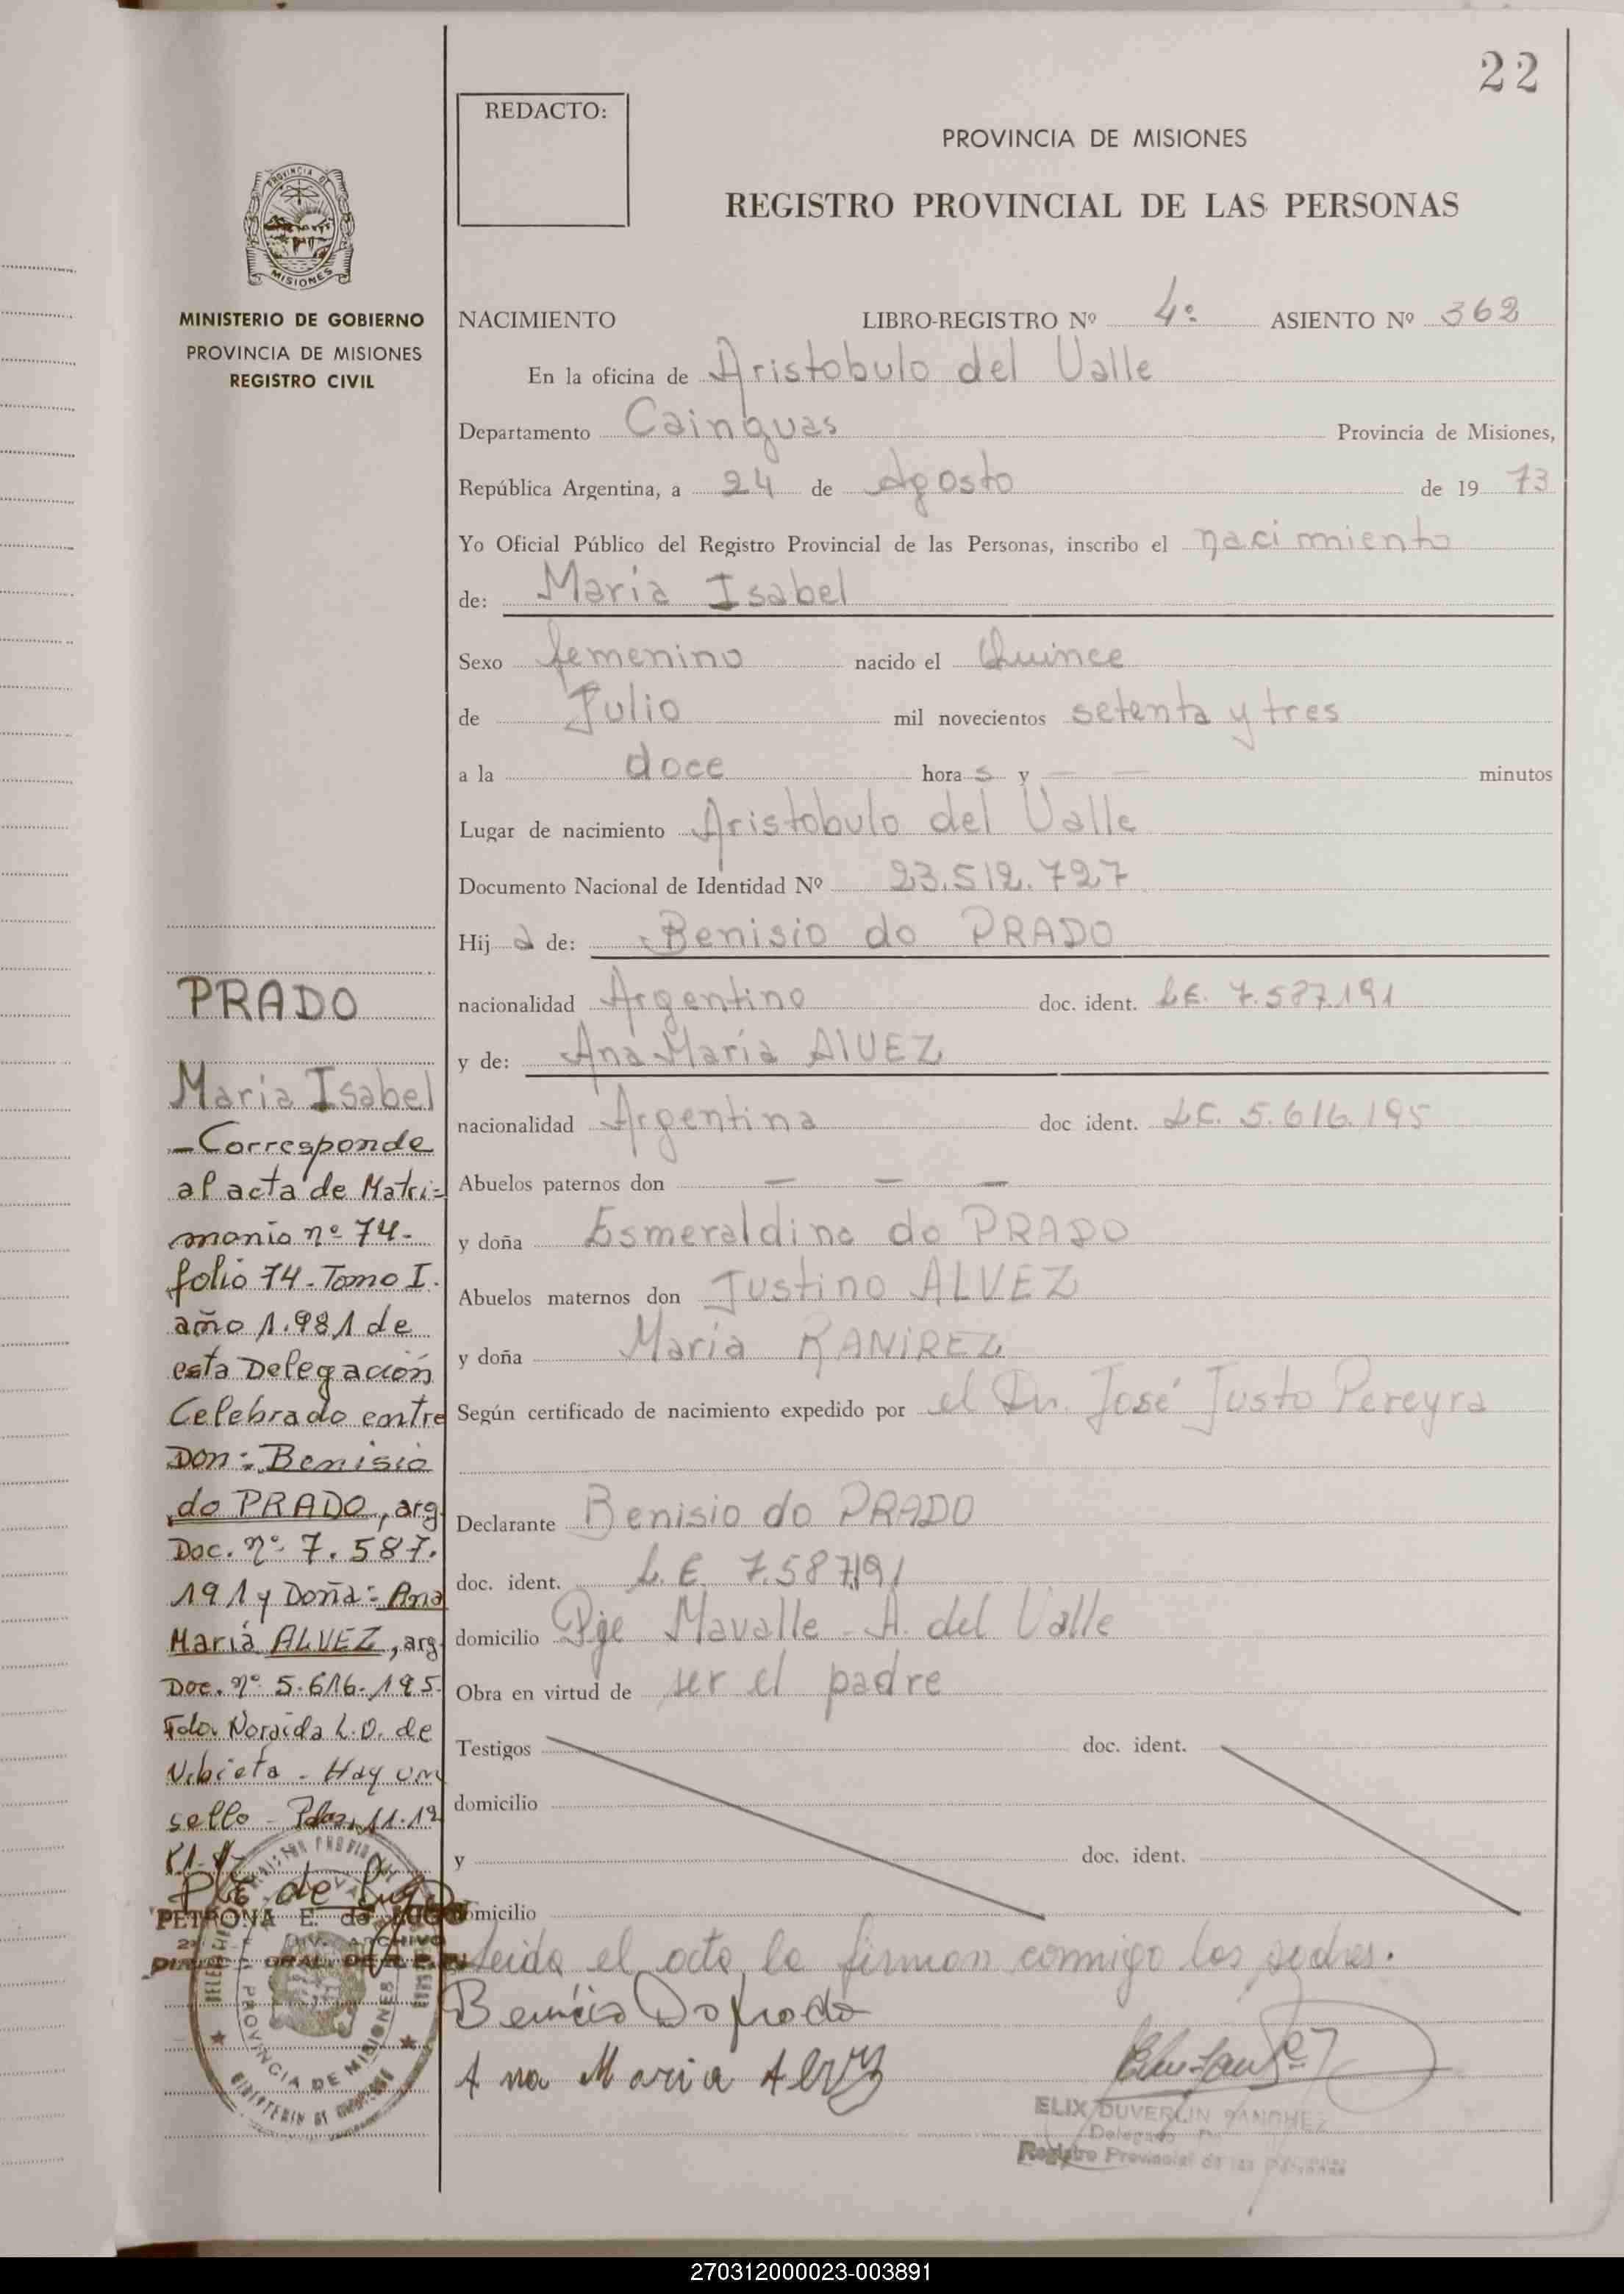 22
REDACTO:
PROVINCIA DE MISIONES
REGISTRO PROVINCIAL DE LAS PERSONAS
PROVINCIA DE
MISIONES
MINISTERIO DE GOBIERNO
PROVINCIA DE MISIONES
REGISTRO CIVIL
NACIMIENTO LIBRO-REGISTRO Nº 4º ASIENTO Nº 362
En la oficina de Aristobulo del Valle
Departamento Cainguas Provincia de Misiones,
República Argentina, a 24 de Agosto de 19 73
Yo Oficial Público del Registro Provincial de las Personas, inscribo el nacimiento
de: Maria Isabel
Sexo femenino nacido el Quince
de Julio mil novecientos setenta y tres
a la doce hora s y — — minutos
Lugar de nacimiento Aristobulo del Valle
Documento Nacional de Identidad Nº 23.512.727
Hij a de: Benisio do PRADO
nacionalidad Argentino doc. ident. L.E. 7.587.191
y de: Ana Maria AlVEZ
nacionalidad Argentina doc ident. L.C. 5.616.195
Abuelos paternos don — — —
y doña Esmeraldina do PRADO
Abuelos maternos don Justino ALVEZ
y doña Maria RANIREZ
Según certificado de nacimiento expedido por el Dr. José Justo Pereyra
Declarante Benisio do PRADO
doc. ident. L.E. 7.587.191
domicilio Pje Mavalle - A. del Valle
Obra en virtud de ser el padre
Testigos doc. ident.
domicilio
y doc. ident.
domicilio
Leida el acta la firman conmigo los padres.
Benicio Do prado
Ana Maria Alvez
ELIX DUVERLIN SANCHEZ
Delegado
Registro Provincial de las Personas
PRADO
Maria Isabel
- Corresponde
al acta de Matri=
monio nº 74-
folio 74 - Tomo I.
año 1.981 de
esta Delegación
Celebrado entre
Don: Benisio
do PRADO, arg
Doc. nº 7.587.
191 y Doña: Ana
Maria ALVEZ, arg
Doc. nº 5.616.195.
Fdo. Noraida L.O. de
Ubieta - Hay un
sello - Pdas, 11.12
PETRONA E. de LUGO
DIV. ARCHIVO
GRAL. DE
PROVINCIA DE MISIONES
270312000023-003891